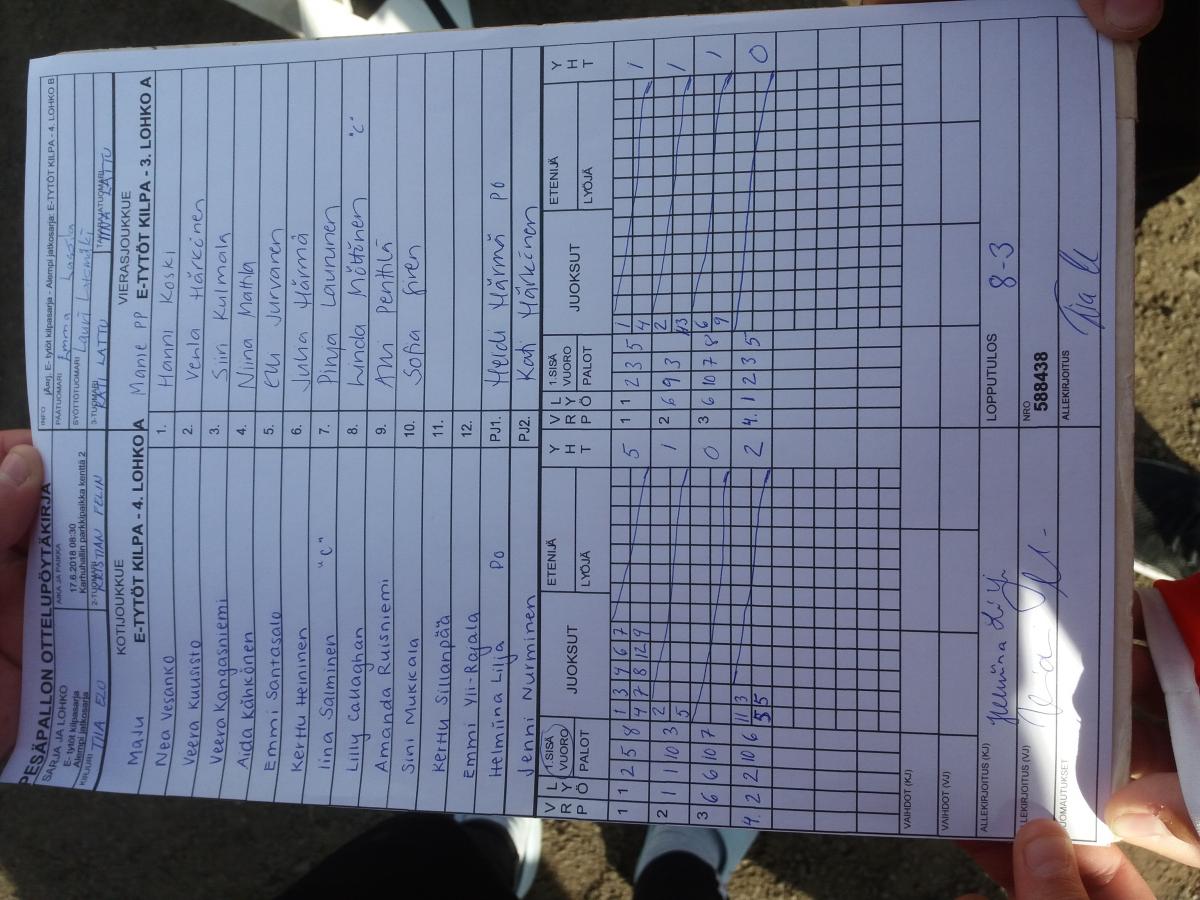 PESÄPALLON OTTELUPÖYTÄKIRJA
SARJA JA LOHKO
E- tytöt kilpasarja
Alempi jatkosarja
AIKA JA PAIKKA
17.6.2018 08:30
Karhuhallin parkkipaikka kenttä 2
INFO
E- tytöt kilpasarja - Alempi jatkosarja: E-TYTÖT KILPA - 4. LOHKO B
PÄÄTUOMARI Emma Lassila
SYÖTTÖTUOMARI Lauri
KIRJURI TIIA ELO
2-TUOMARI KRISTIAN FELIN
3-TUOMARI KATI LATTU
LATTU
KOTIJOUKKUE
MaJu E-TYTÖT KILPA - 4. LOHKO A
VIERASJOUKKUE
Manse PP E-TYTÖT KILPA - 3. LOHKO A
Nea Vesanko 1. Hanni Koski
Veera Kuusisto 2. Venla Härkönen
Veera Kangasniemi 3. Siiri Kulmala
Aida Kähkönen 4. Niina Mattila
Emmi Santasalo 5. Elli Jurvanen
Kerttu Heininen 6. Julia Härmä
Iina Salminen "C" 7. Pinja Laurunen
Lilly Callaghan 8. Linda Möttönen "C"
Amanda Ruisniemi 9. Anni Penttilä
Sini Mukkala 10. Sofia Siren
Kerttu Sillanpää 11.
Emmi Yli-Rajala 12.
Helmiina Lilja PO PJ1. Heidi Härmä PO
Jenni Nurminen PJ2. Kati Härkönen
V R P L Y Ö 1.SISÄ VUORO PALOT JUOKSUT ETENIJÄ LYÖJÄ Y H T V R P L Y Ö 1.SISÄ VUORO PALOT JUOKSUT ETENIJÄ LYÖJÄ Y H T
1 1 2 5 8 1 3 4 6 7 5 1 1 2 3 5 1 1
4 7 8 12 9 4
2 1 1 10 3 2 1 2 6 9 3 2 1
5 13
3 6 6 10 7 0 3 6 10 7 8 6 1
9
4. 2 2 10 6 11 3 2 4. 1 2 3 5 0
5 5
VAIHDOT (KJ)
VAIHDOT (VJ)
ALLEKIRJOITUS (KJ)
LOPPUTULOS 8-3
ALLEKIRJOITUS (VJ)
NRO
588438
HUOMAUTUKSET
ALLEKIRJOITUS